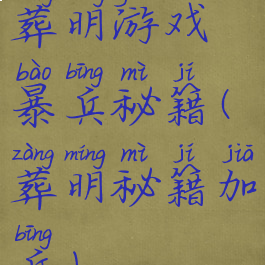 葬明游戏
bào bīng mì jí
暴兵秘籍(
zàng míng mì jí jiā
葬明秘籍加
bīng
兵)